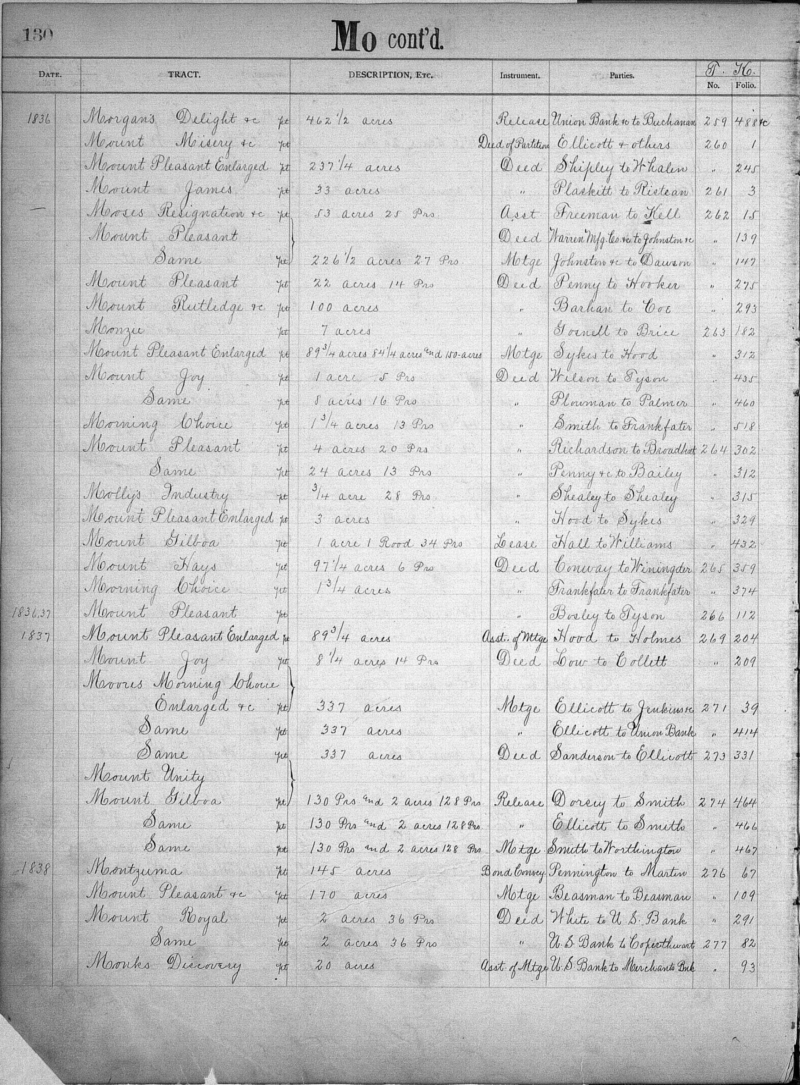 130
Mo cont'd.
DATE. TRACT. DESCRIPTION, ETC. Instrument. Parties. T. K.
No. Folio.
1836 Morgans Delight &c pt 462 1/2 acres Release Union Bank &c to Buchanan 259 488 &c
Mount Misery &c pt Deed of Partition Ellicott & others 260 1
Mount Pleasant Enlarged pt 237 1/4 acres Deed Shipley to Whalen " 245
Mount James pt 33 acres " Plaskitt to Ristean 261 3
— Moses Resignation &c pt 53 acres 25 Prs Asst Freeman to Kell 262 15
Mount Pleasant Deed Warren Mfg Co &c to Johnston &c " 139
Same pt 226 1/2 acres 27 Prs Mtge Johnston &c to Dawson " 147
Mount Pleasant pt 22 acres 14 Prs Deed Penny to Hooker " 275
Mount Rutledge &c pt 100 acres " Barhan to Coe " 293
Monzie pt 7 acres " Gosnell to Brice 263 182
Mount Pleasant Enlarged pt 89 3/4 acres 84 1/4 acres and 150 acres Mtge Sykes to Hood " 312
Mount Joy pt 1 acre 5 Prs Deed Wilson to Tyson " 435
Same pt 8 acres 16 Prs " Plowman to Palmer " 460
Morning Choice pt 1 3/4 acres 13 Prs " Smith to Frankfater " 518
Mount Pleasant pt 4 acres 20 Prs " Richardson to Broadbent 264 302
Same pt 24 acres 13 Prs " Penny &c to Bailey " 312
Molly's Industry pt 3/4 acre 28 Prs " Shealey to Shealey " 315
Mount Pleasant Enlarged pt 3 acres " Hood to Sykes " 329
Mount Gilboa pt 1 acre 1 Rood 34 Prs Lease Hall to Williams " 432
Mount Hays pt 97 1/4 acres 6 Prs Deed Conway to Winingder 265 359
Morning Choice pt 1 3/4 acres " Frankfater to Frankfater " 374
1836.37 Mount Pleasant pt " Bosley to Tyson 266 112
1837 Mount Pleasant Enlarged pt 89 3/4 acres Asst. of Mtge Hood to Holmes 269 204
Mount Joy pt 8 1/4 acres 14 Prs Deed Low to Collett " 209
Moores Morning Choice
Enlarged &c pt 337 acres Mtge Ellicott to Jenkins &c 271 39
Same pt 337 acres " Ellicott to Union Bank " 414
Same pt 337 acres Deed Sanderson to Ellicott 273 331
Mount Unity
Mount Gilboa pt 130 Prs and 2 acres 128 Prs Release Dorsey to Smith 274 464
Same pt 130 Prs and 2 acres 128 Prs " Ellicott to Smith " 466
Same pt 130 Prs and 2 acres 128 Prs Mtge Smith to Worthington " 467
1838 Montzuma pt 145 acres Bond Convey Pennington to Martin 276 67
Mount Pleasant &c pt 170 acres Mtge Beasman to Beasman " 109
Mount Royal pt 2 acres 36 Prs Deed White to U. S. Bank " 291
Same pt 2 acres 36 Prs " U.S Bank to 277 82
Monks Discovery pt 20 acres Asst. of Mtge U.S Bank to Merchants Bnk " 93